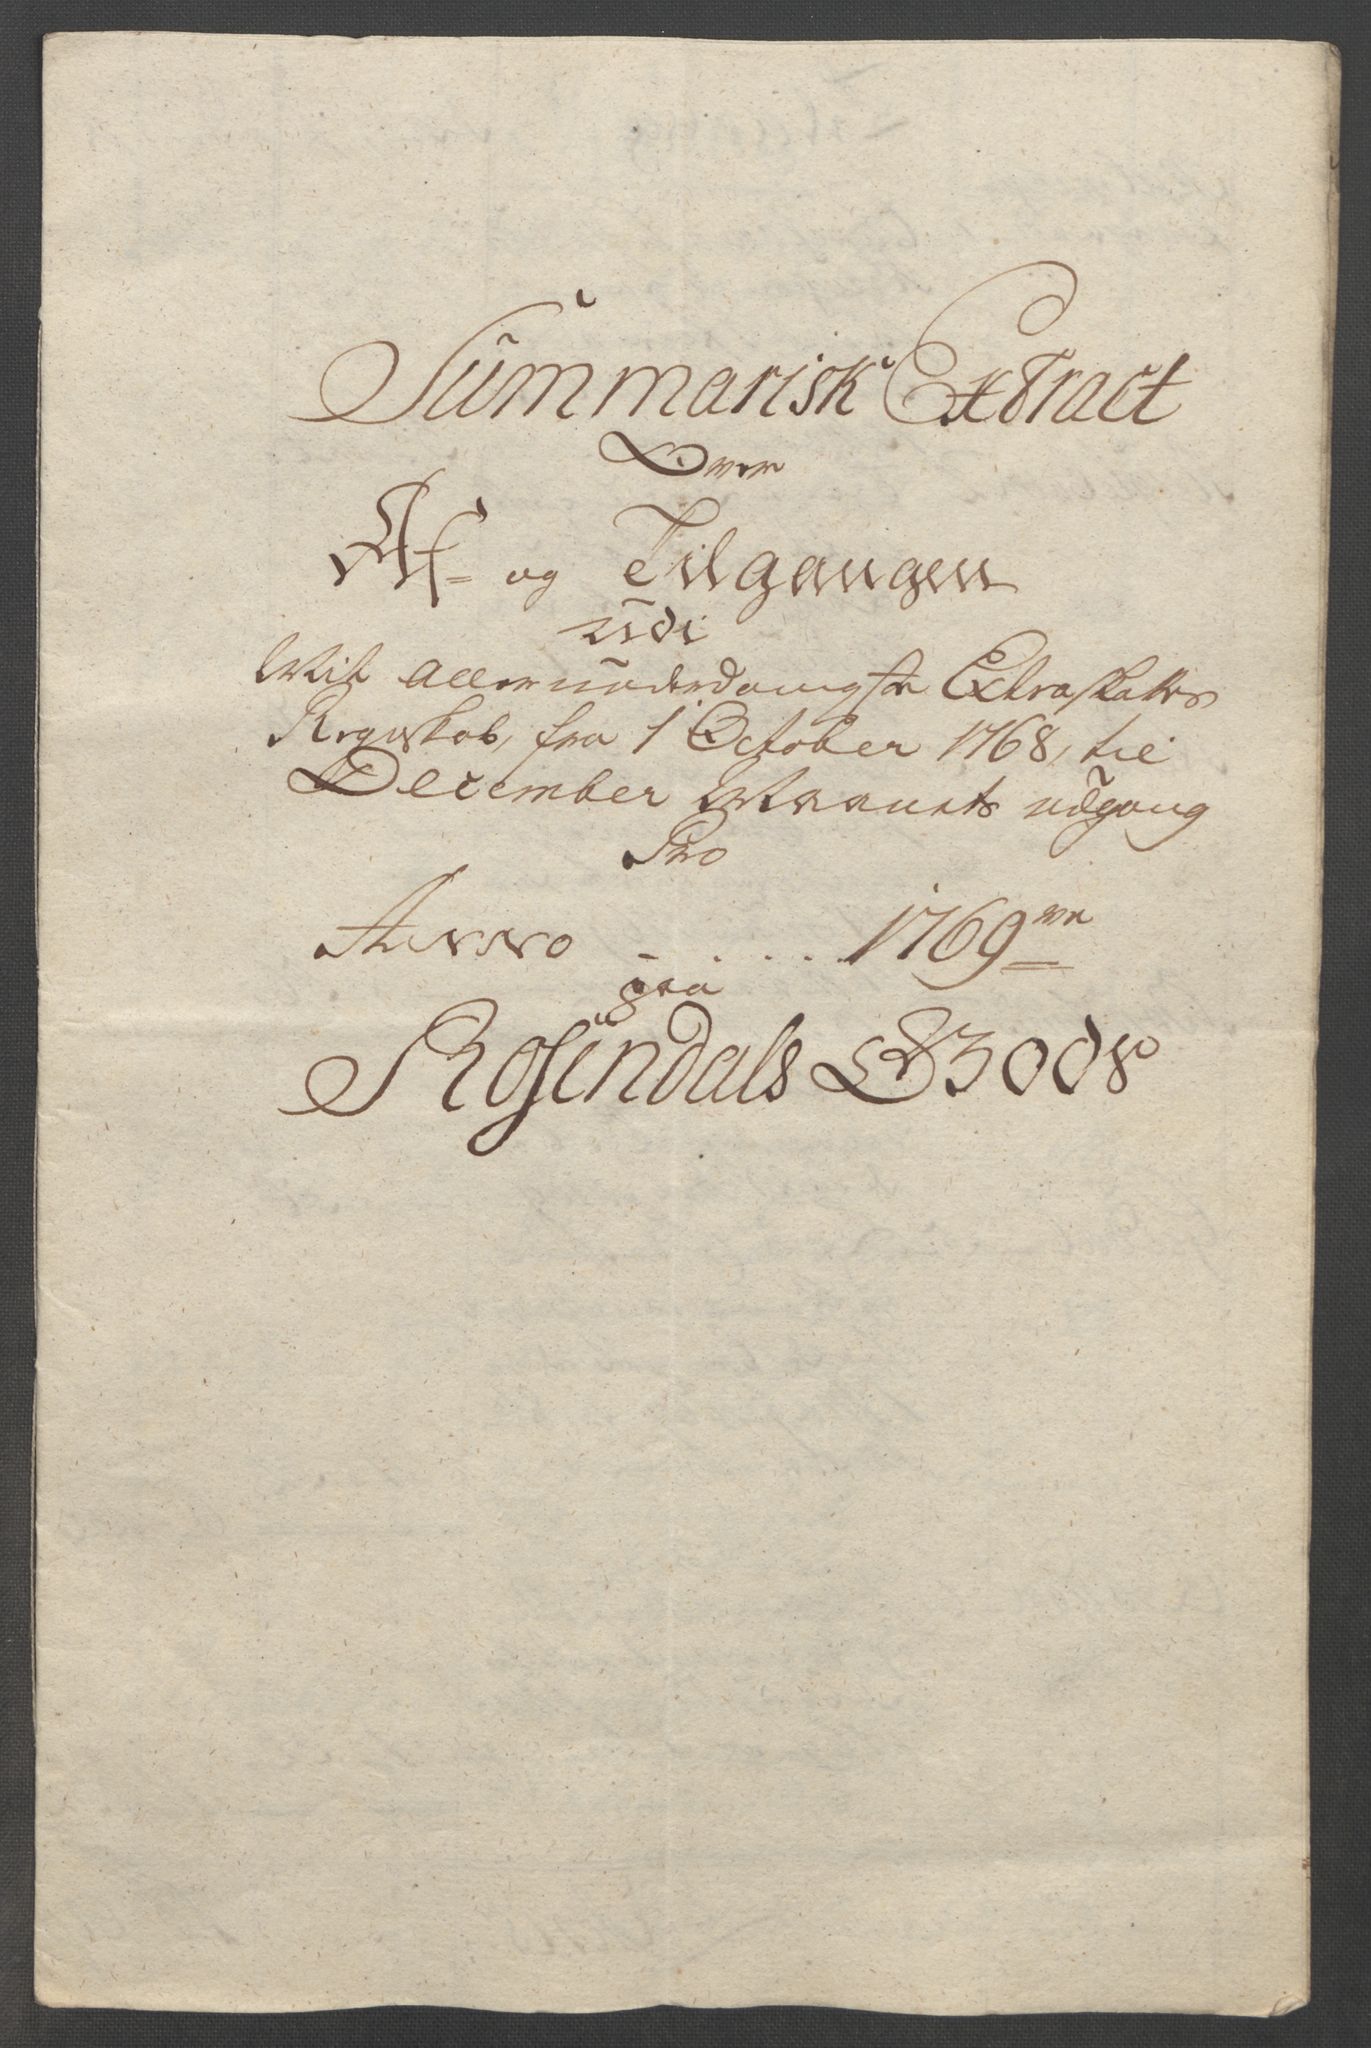 Summarisk Extract
Over
Af- og Tilgangen
udi
Mit allerunderdanigste Extraskattes
Regnskab, fra 1 October 1768, til
December Maanets udgang
Pro
Anno - . . . . 1769ve
paa
Rosendals Gods